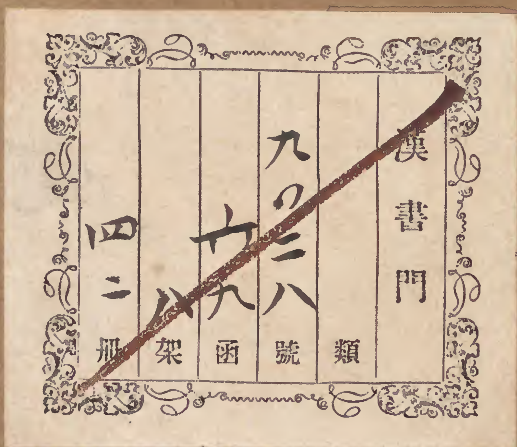 漢書門
類
九〇二八號
六九函
八架
四二冊